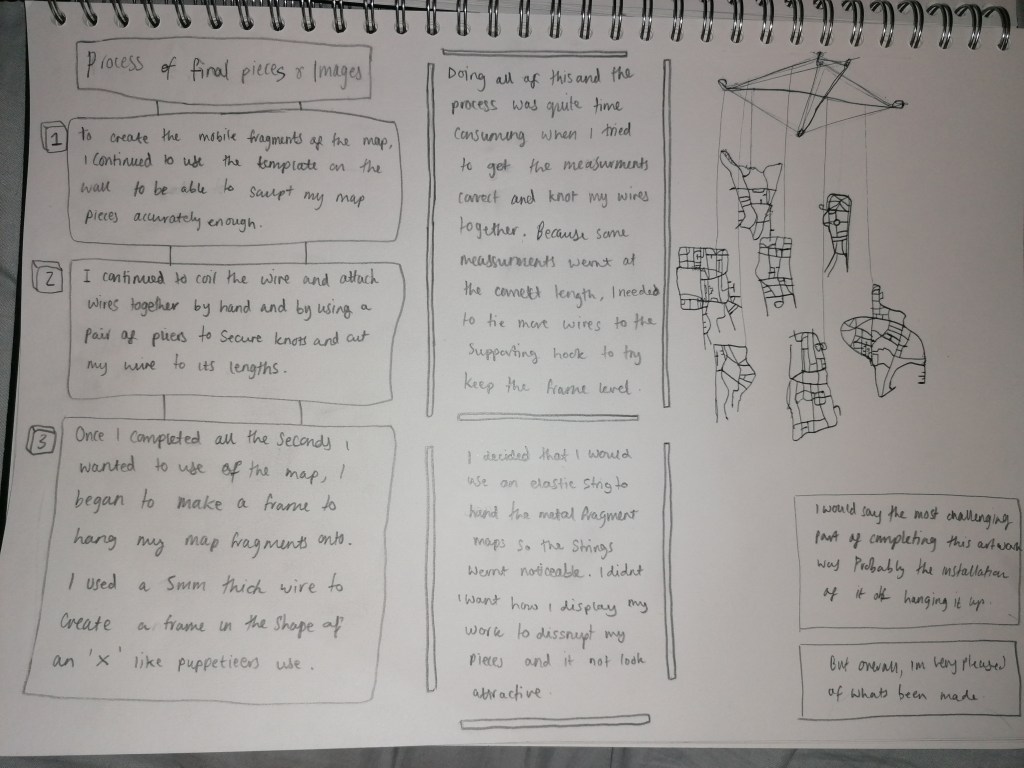 Process of final pieces & Images
1
To create the mobile fragments of the map,
I continued to use the template on the
wall to be able to sculpt my map
pieces accurately enough.
2
I continued to coil the wire and attach
wires together by hand and by using a
pair of pliers to secure knots and cut
my wire to its lengths.
3
Once I completed all the seconds I
wanted to use of the map, I
began to make a frame to
hang my map fragments onto.
I used a 5mm thick wire to
create a frame in the shape of
an 'X' like puppetieers use.
Doing all of this and the
process was quite time
consuming when I tried
to get the measurments
correct and knot my wires
together. Because some
meassurments wernt at
the correct length, I needed
to tie more wires to the
supporting hook to try
keep the frame level.
I decided that I would
use an elastic strig to
hand the metal fragment
maps so the strings
wernt noticeable. I didnt
want how I display my
work to dissrupt my
pieces and it not look
attractive.
I would say the most challenging
part of completing this artwork
was probably the installation
of it of hanging it up.
But overall, im very pleased
of whats been made.